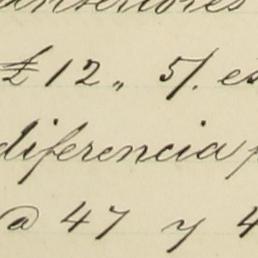 anteriores
£ 12„ 5/. es
diferencia p
@ 47 y 4